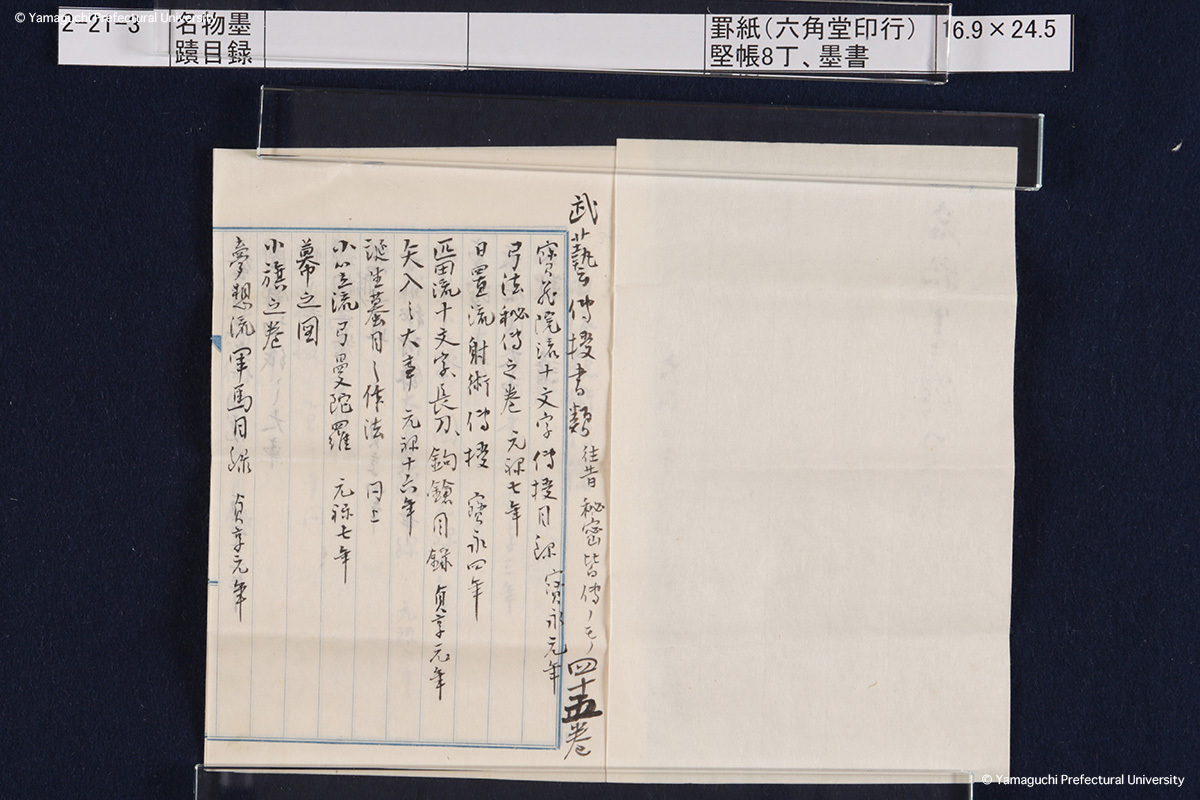 © Yamaguchi Prefectural University
2-21-3
名物墨
蹟目録
罫紙（六角堂印行）
堅帳8丁、墨書
16.9×24.5
武藝傳授書類 往昔秘密皆傳ノモノ 四十五巻
寳蔵院流十文字傳授目録 寳永元年
弓法秘傳之巻 元禄七年
日置流射術傳授 寳永四年
匹田流十文字、長刀、鉤鎗目録 貞享元年
矢入之大事 元禄十六年
誕生蟇目之作法 同上
小笠流弓曼陀羅 元禄七年
幕之図
小旗之巻
夢想流軍馬目録 貞享元年
© Yamaguchi Prefectural University